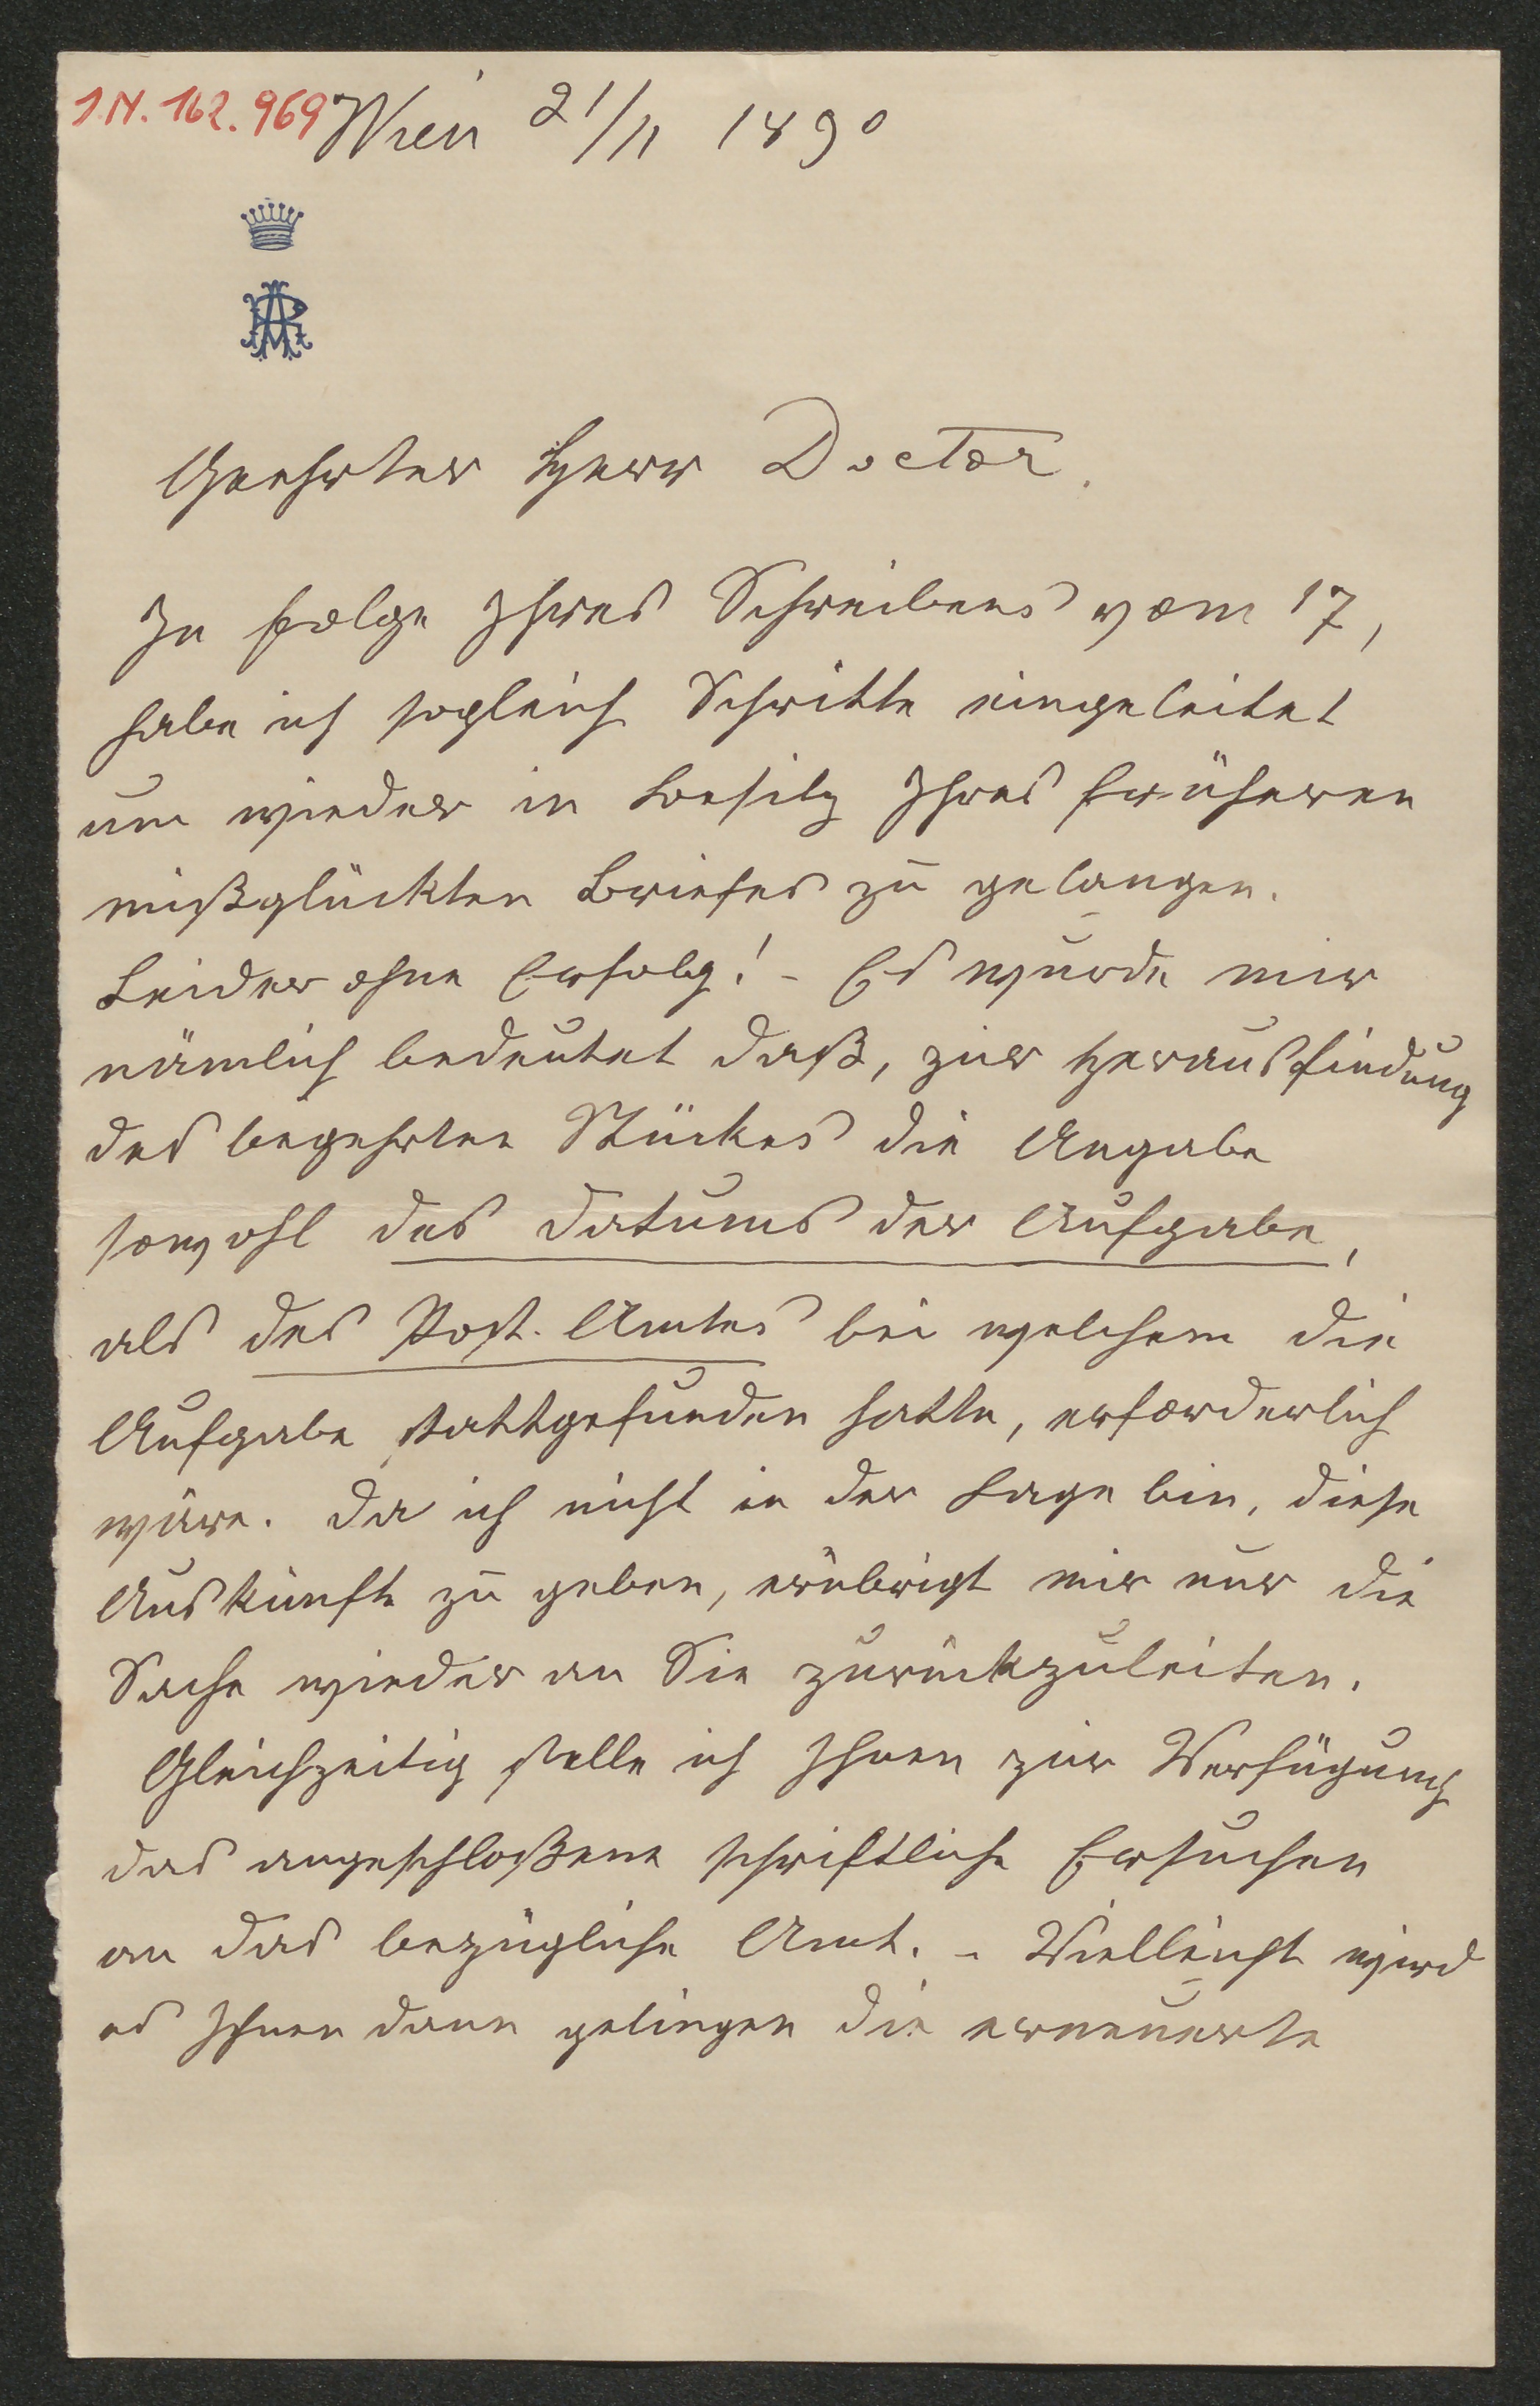 I.N. 162.969
Wien 21/11 1890
AR
Geehrter Herr Doctor.
In folge Ihres Schreibens vom 17,
habe ich sogleich Schritte eingeleitet
um wieder in Besitz Ihres früheren
mißglückten Briefes zu gelangen.
Leider ohne Erfolg! – Es wurde mir
nämlich bedeutet daß, zur Herausfindung
des begehrten Stückes die Angabe
sowohl des Datums der Aufgabe,
als des Post-Amtes bei welchem die
Aufgabe stattgefunden hatte, erforderlich
wäre. Da ich nicht in der Lage bin, diese
Auskünfte zu geben, erübrigt mir nur die
Sache wieder an Sie zurückzuleiten.
Gleichzeitig stelle ich Ihnen zur Verfügung
das angeschloßene schriftliche Ersuchen
an das bezügliche Amt. – Vielleicht wird
es Ihnen dann gelingen die erneuerte